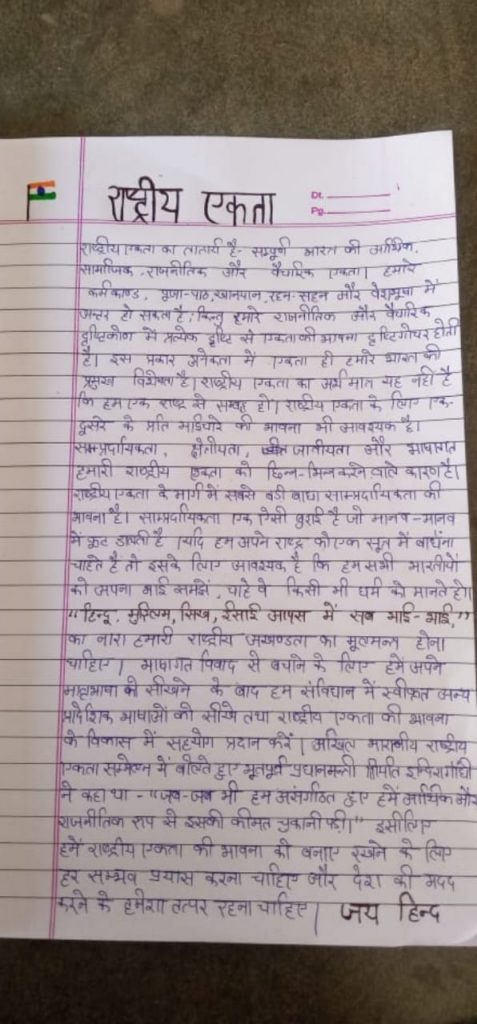 राष्ट्रीय एकता
Dt.
Pg.
राष्ट्रीय एकता का तात्पर्य है- सम्पूर्ण भारत की आर्थिक,
सामाजिक, राजनीतिक और वैचारिक एकता। हमारे
कर्मकाण्ड, पूजा-पाठ, खानपान, रहन-सहन और वेशभूषा में
अन्तर हो सकता है; किन्तु हमारे राजनीतिक और वैचारिक
दृष्टिकोण में प्रत्येक दृष्टि से एकता की भावना दृष्टिगोचर होती
है। इस प्रकार अनेकता में एकता ही हमारे भारत की
प्रमुख विशेषता है। राष्ट्रीय एकता का अर्थ मात्र यह नहीं है
कि हम एक राष्ट्र से सम्बद्ध हो। राष्ट्रीय एकता के लिए एक-
दूसरे के प्रति भाईचारे की भावना भी आवश्यक है।
साम्प्रदायिकता, क्षेत्रीयता, जातीयता और भाषागत
हमारी राष्ट्रीय एकता को छिन्न-भिन्न करने वाले कारण है।
राष्ट्रीय एकता के मार्ग में सबसे बडी बाधा साम्प्रदायिकता की
भावना है। साम्प्रदायिकता एक ऐसी बुराई है जो मानव-मानव
में फूट डालती है। यदि हम अपने राष्ट्र को एक सूत्र में बाधँना
चाहते है तो इसके लिए आवश्यक है कि हम सभी भारतीयों
को अपना भाई समझें, चाहे वे किसी भी धर्म को मानते हो।
"हिन्दू, मुस्लिम, सिख, ईसाई आपस में सब भाई-भाई,"
का नारा हमारी राष्ट्रीय अखण्डता का मूलमन्त्र होना
चाहिए। भाषागत विवाद से बचाने के लिए हमें अपने
मातृभाषा को सीखने के बाद हम संविधान में स्वीकृत अन्य
प्रादेशिक भाषाओं को सीखे तथा राष्ट्रीय एकता की भावना
के विकास में सहयोग प्रदान करें। अखिल भारतीय राष्ट्रीय
एकता सम्मेलन में बोलते हुए भूतपूर्व प्रधानमन्त्री इन्दिरा गांधी
ने कहा था - "जब-जब भी हम असंगठित हुए हमें आर्थिक और
राजनीतिक रूप से इसकी कीमत चुकानी पडी।" इसीलिए
हमें राष्ट्रीय एकता की भावना को बनाए रखने के लिए
हर सम्भव प्रयास करना चाहिए और देश की मदद
करने के हमेशा तत्पर रहना चाहिए। जय हिन्द